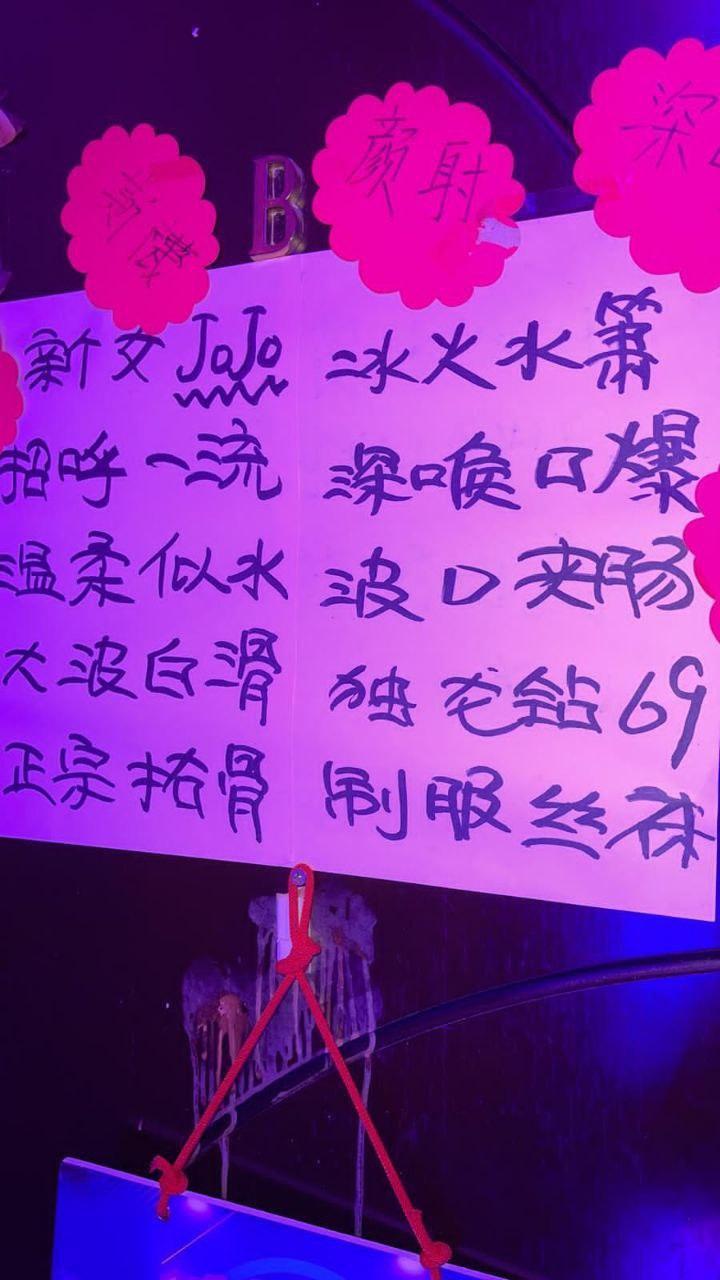 B
颜射
深
新女JoJo
冰火水箫
招呼一流
深喉口爆
温柔似水
波口夹肠
大波白滑
独龙钻69
正宗 骨
制服丝袜